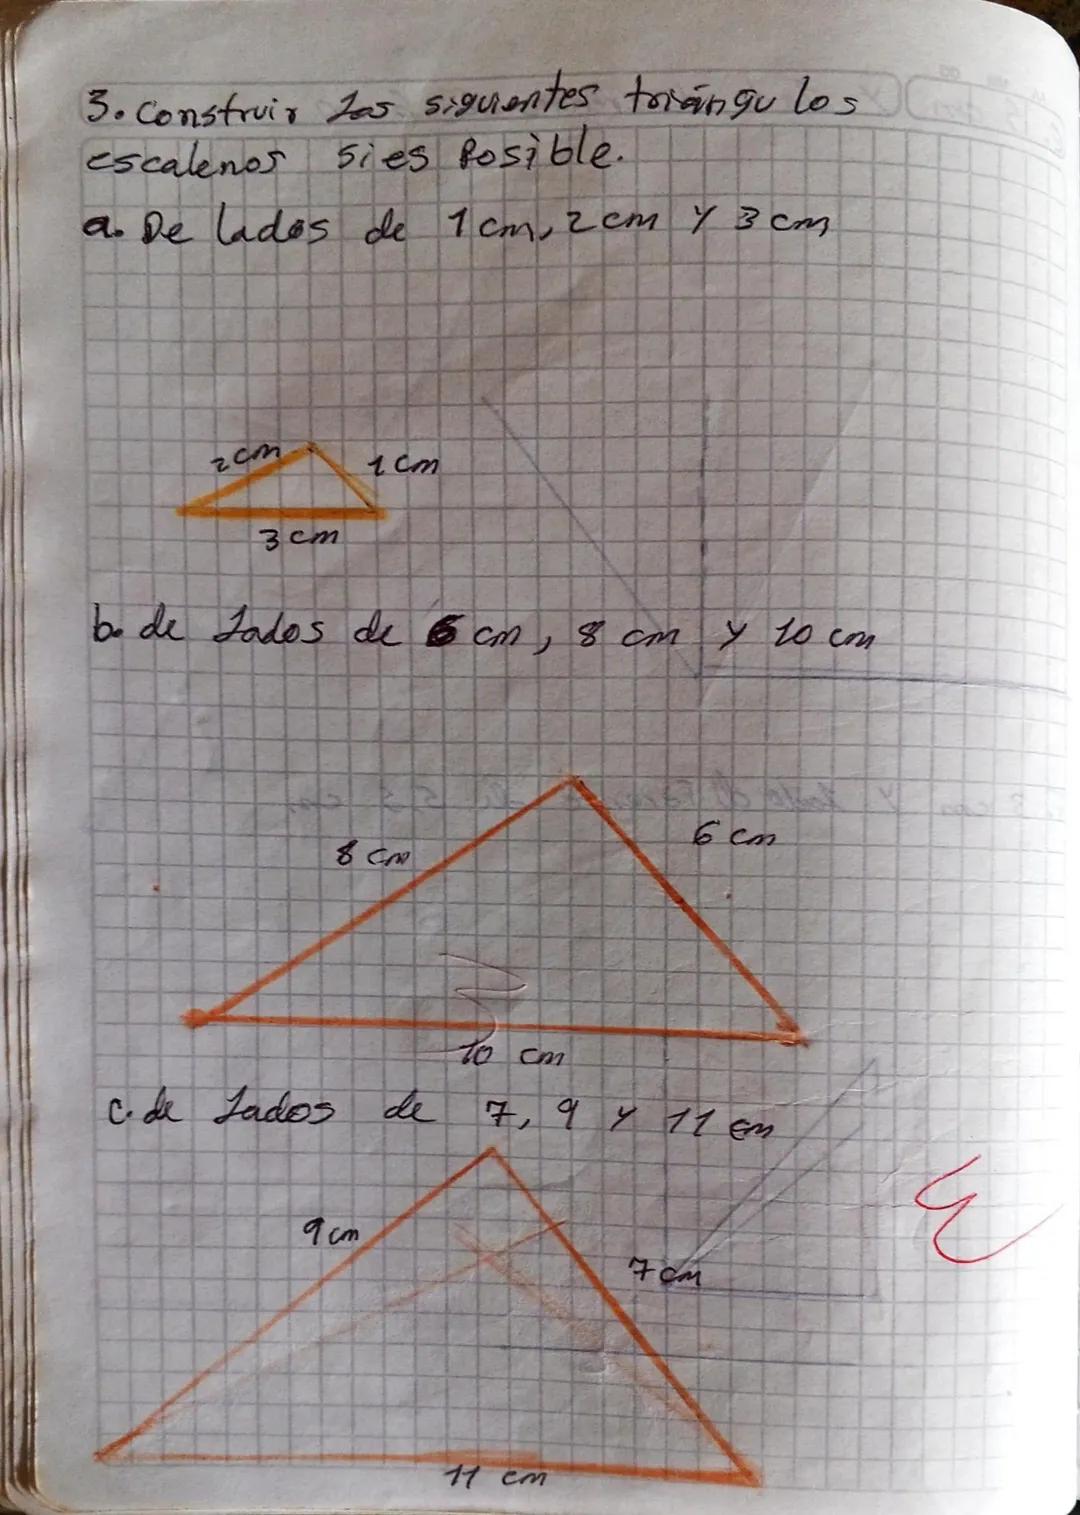 3. Construir los siguientes triángulos
escalenos si es Posible.
a. De lados de 1 cm, 2 cm y 3 cm
2 cm
1 cm
3 cm
b. de lados de 6 cm, 8 cm y 10 cm
8 cm
6 cm
10 cm
c. de lados de 7, 9 y 11 cm
9 cm
7 cm
11 cm